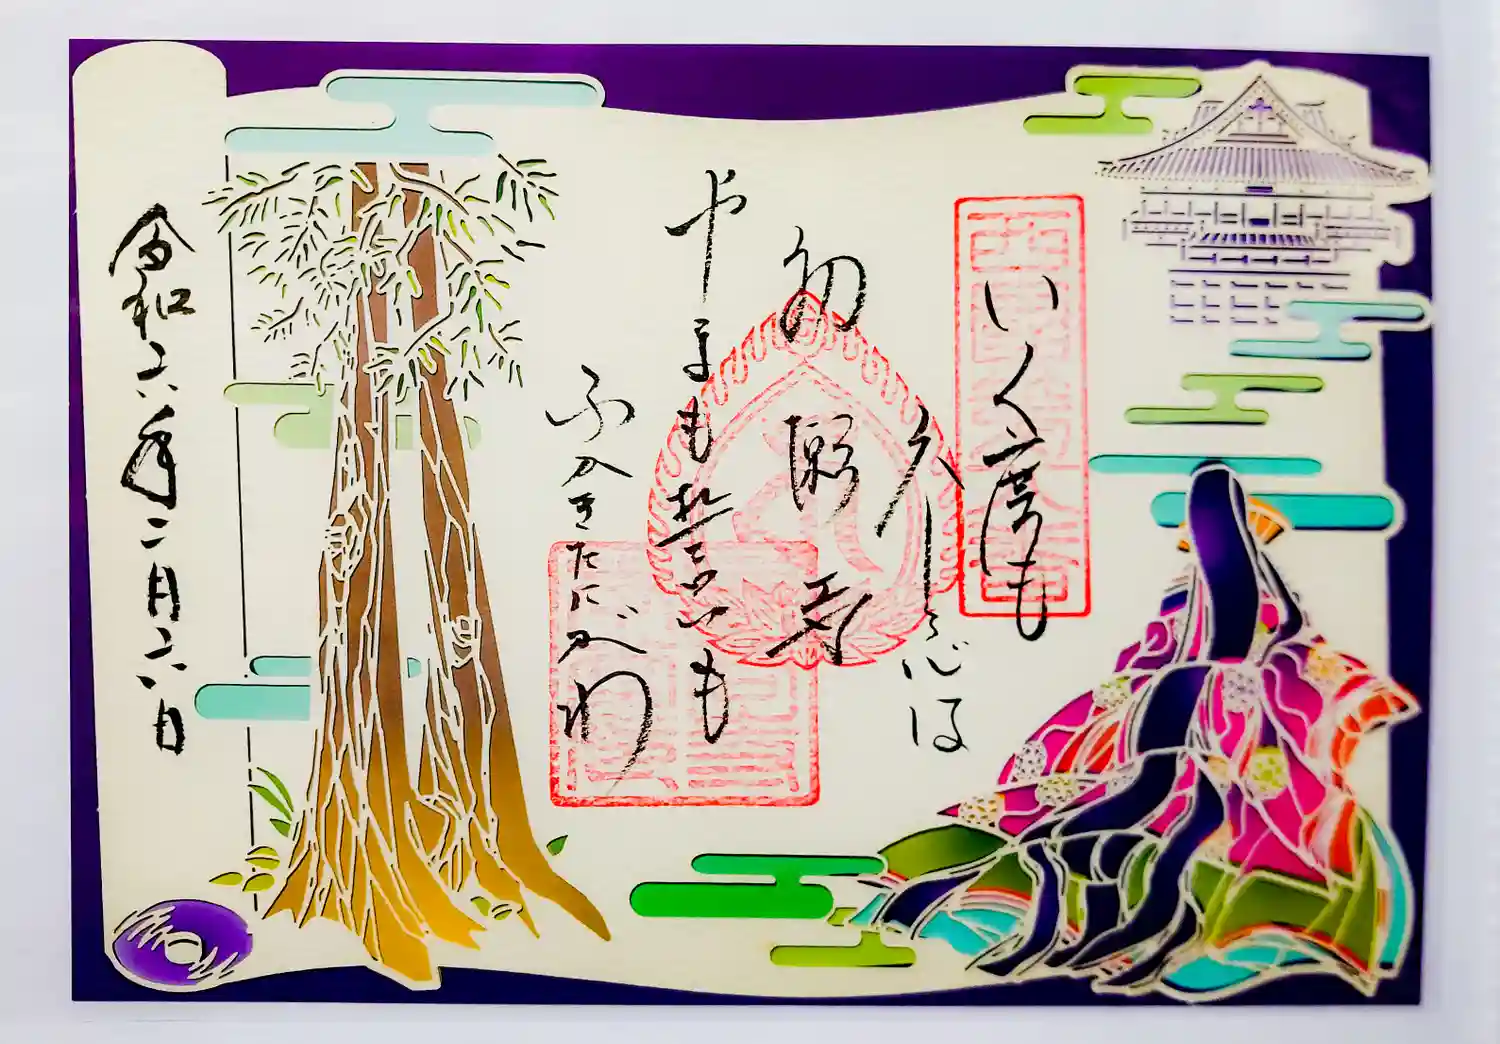 いく度も
心は
初瀬寺
やまも誓いも
ふかきたにがわ
令和六年二月六日